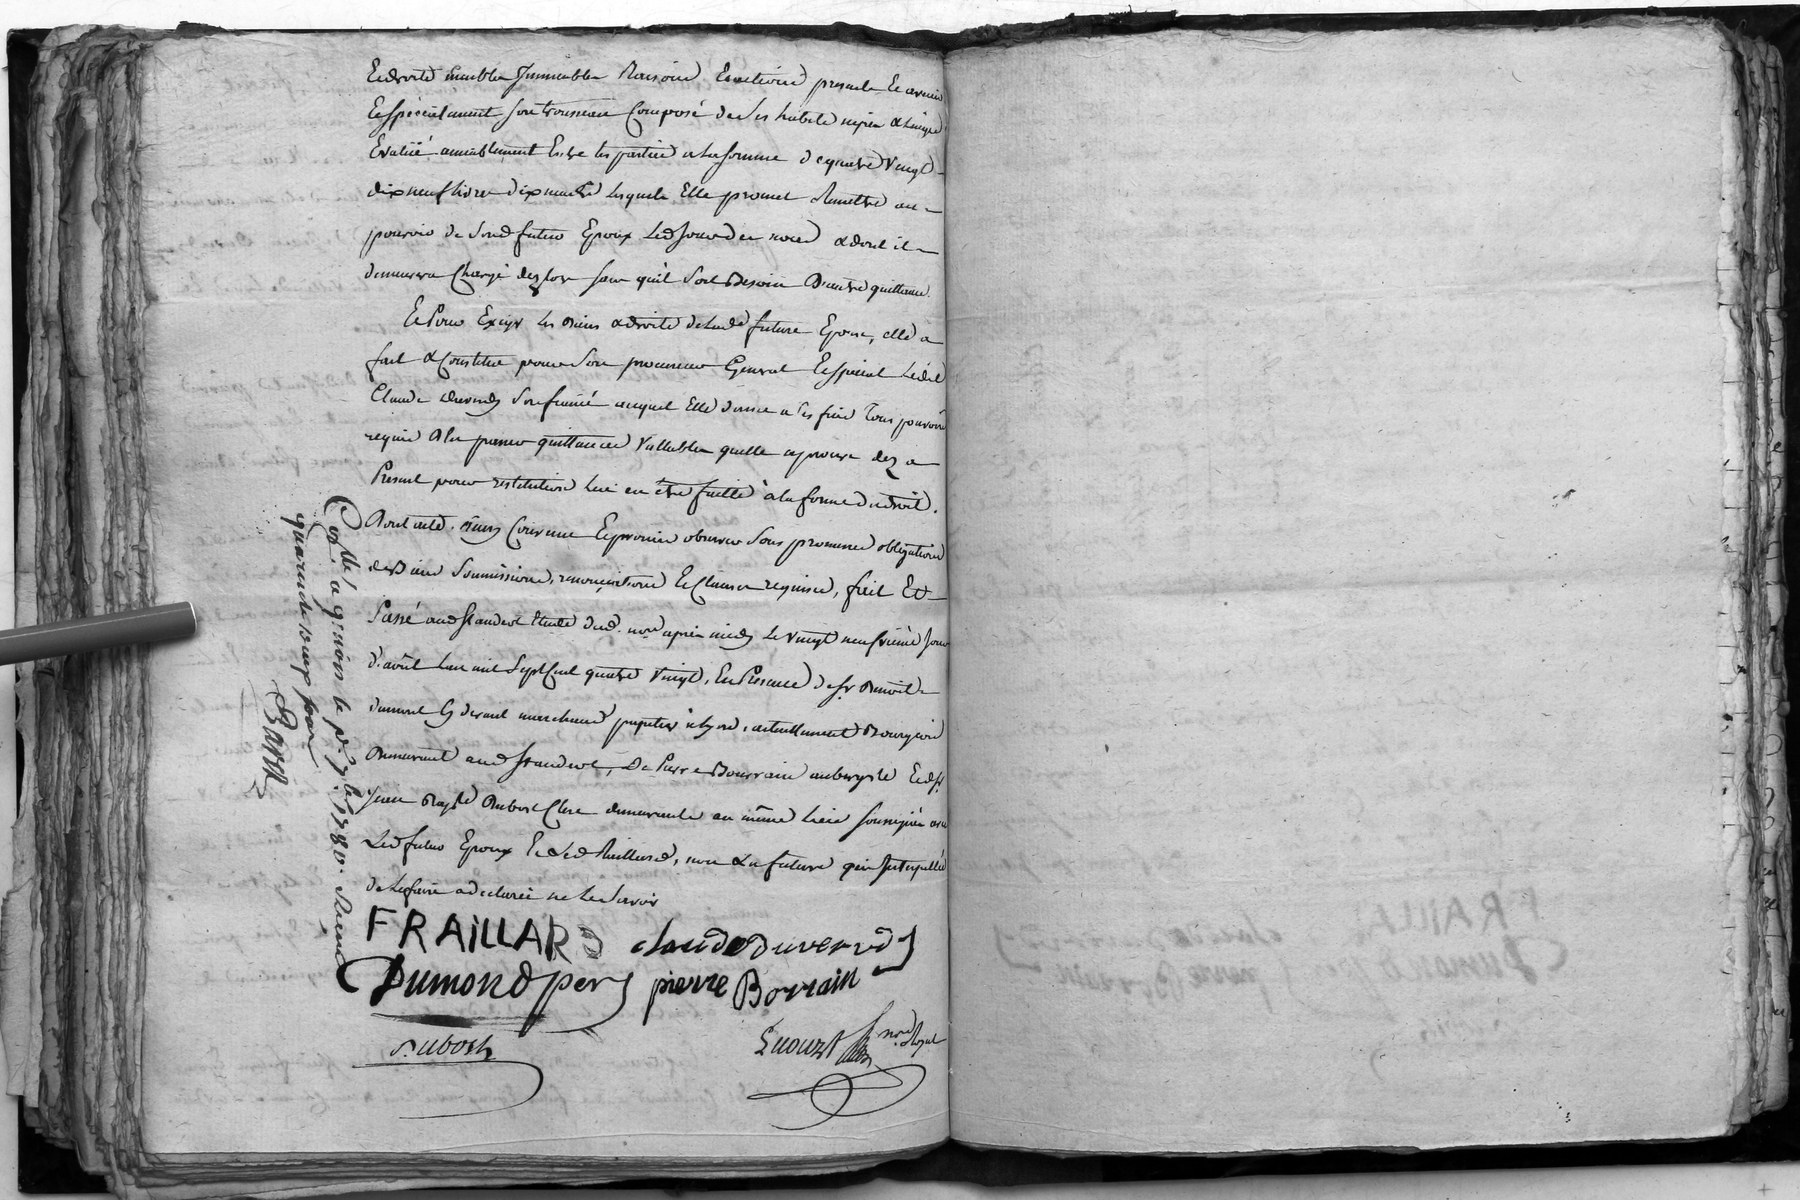 Et droits meubles Immeubles Raisons Et actions presents Et avenir
Et spécialement son trousseau Composé de Ses habits nipes & linges
Evalué amiablement Entre les parties a La somme de quatre Vingt
dix neuf livres dix neuf lesquels Elle promet Remettre au
pouvoir de Sond futur Epoux Led Jour des noces & dont il
demeurera Chargé dez lors sans qu'il Soit Besoin D'autre quittance
Et Pour Exiger les Biens & droits de Lad.e future Epouse, elle a
fait & Constitue pour Son procureur General & special Ledit
Claude duverdy Son fiancé auquel Elle donne a ses fins Tous pouvoirs
requis A la passer quittances Vallables quelle aprouve dez a
Present pour restitution Lui en être faitte à la forme du droit.
Dont acte. Ainsy Convenu Et promis observer Sous promesses obligations
de Biens Soumissions, renonciations Et Clauses requises, fait Et
Passé aud Etude dud. no.re après midy Le Vingt neufvieme Jour
d'avût L'an mil Sept Cent quatre Vingt, En Presence de Sr Benoit
dumont Cy devant marchand à Lyon, actuellement Bourgeois
Demeurant aud, De Pierre Bourrain aubergiste Et de Sr
Jean Bap.te Dubost Clerc demeurants au même Lieu soussignés avec
Led futur Epoux Et Led fraillard, non La future qui Interpellée
de Le faire a déclaré ne Le Savoir
FRAILLARD claude Duverdy
Dumond per pierre Borrain
Dubost
no.re Royal
Con.lle a le p.r 7.bre 1780. Recu
quarente cinq sous
Barou